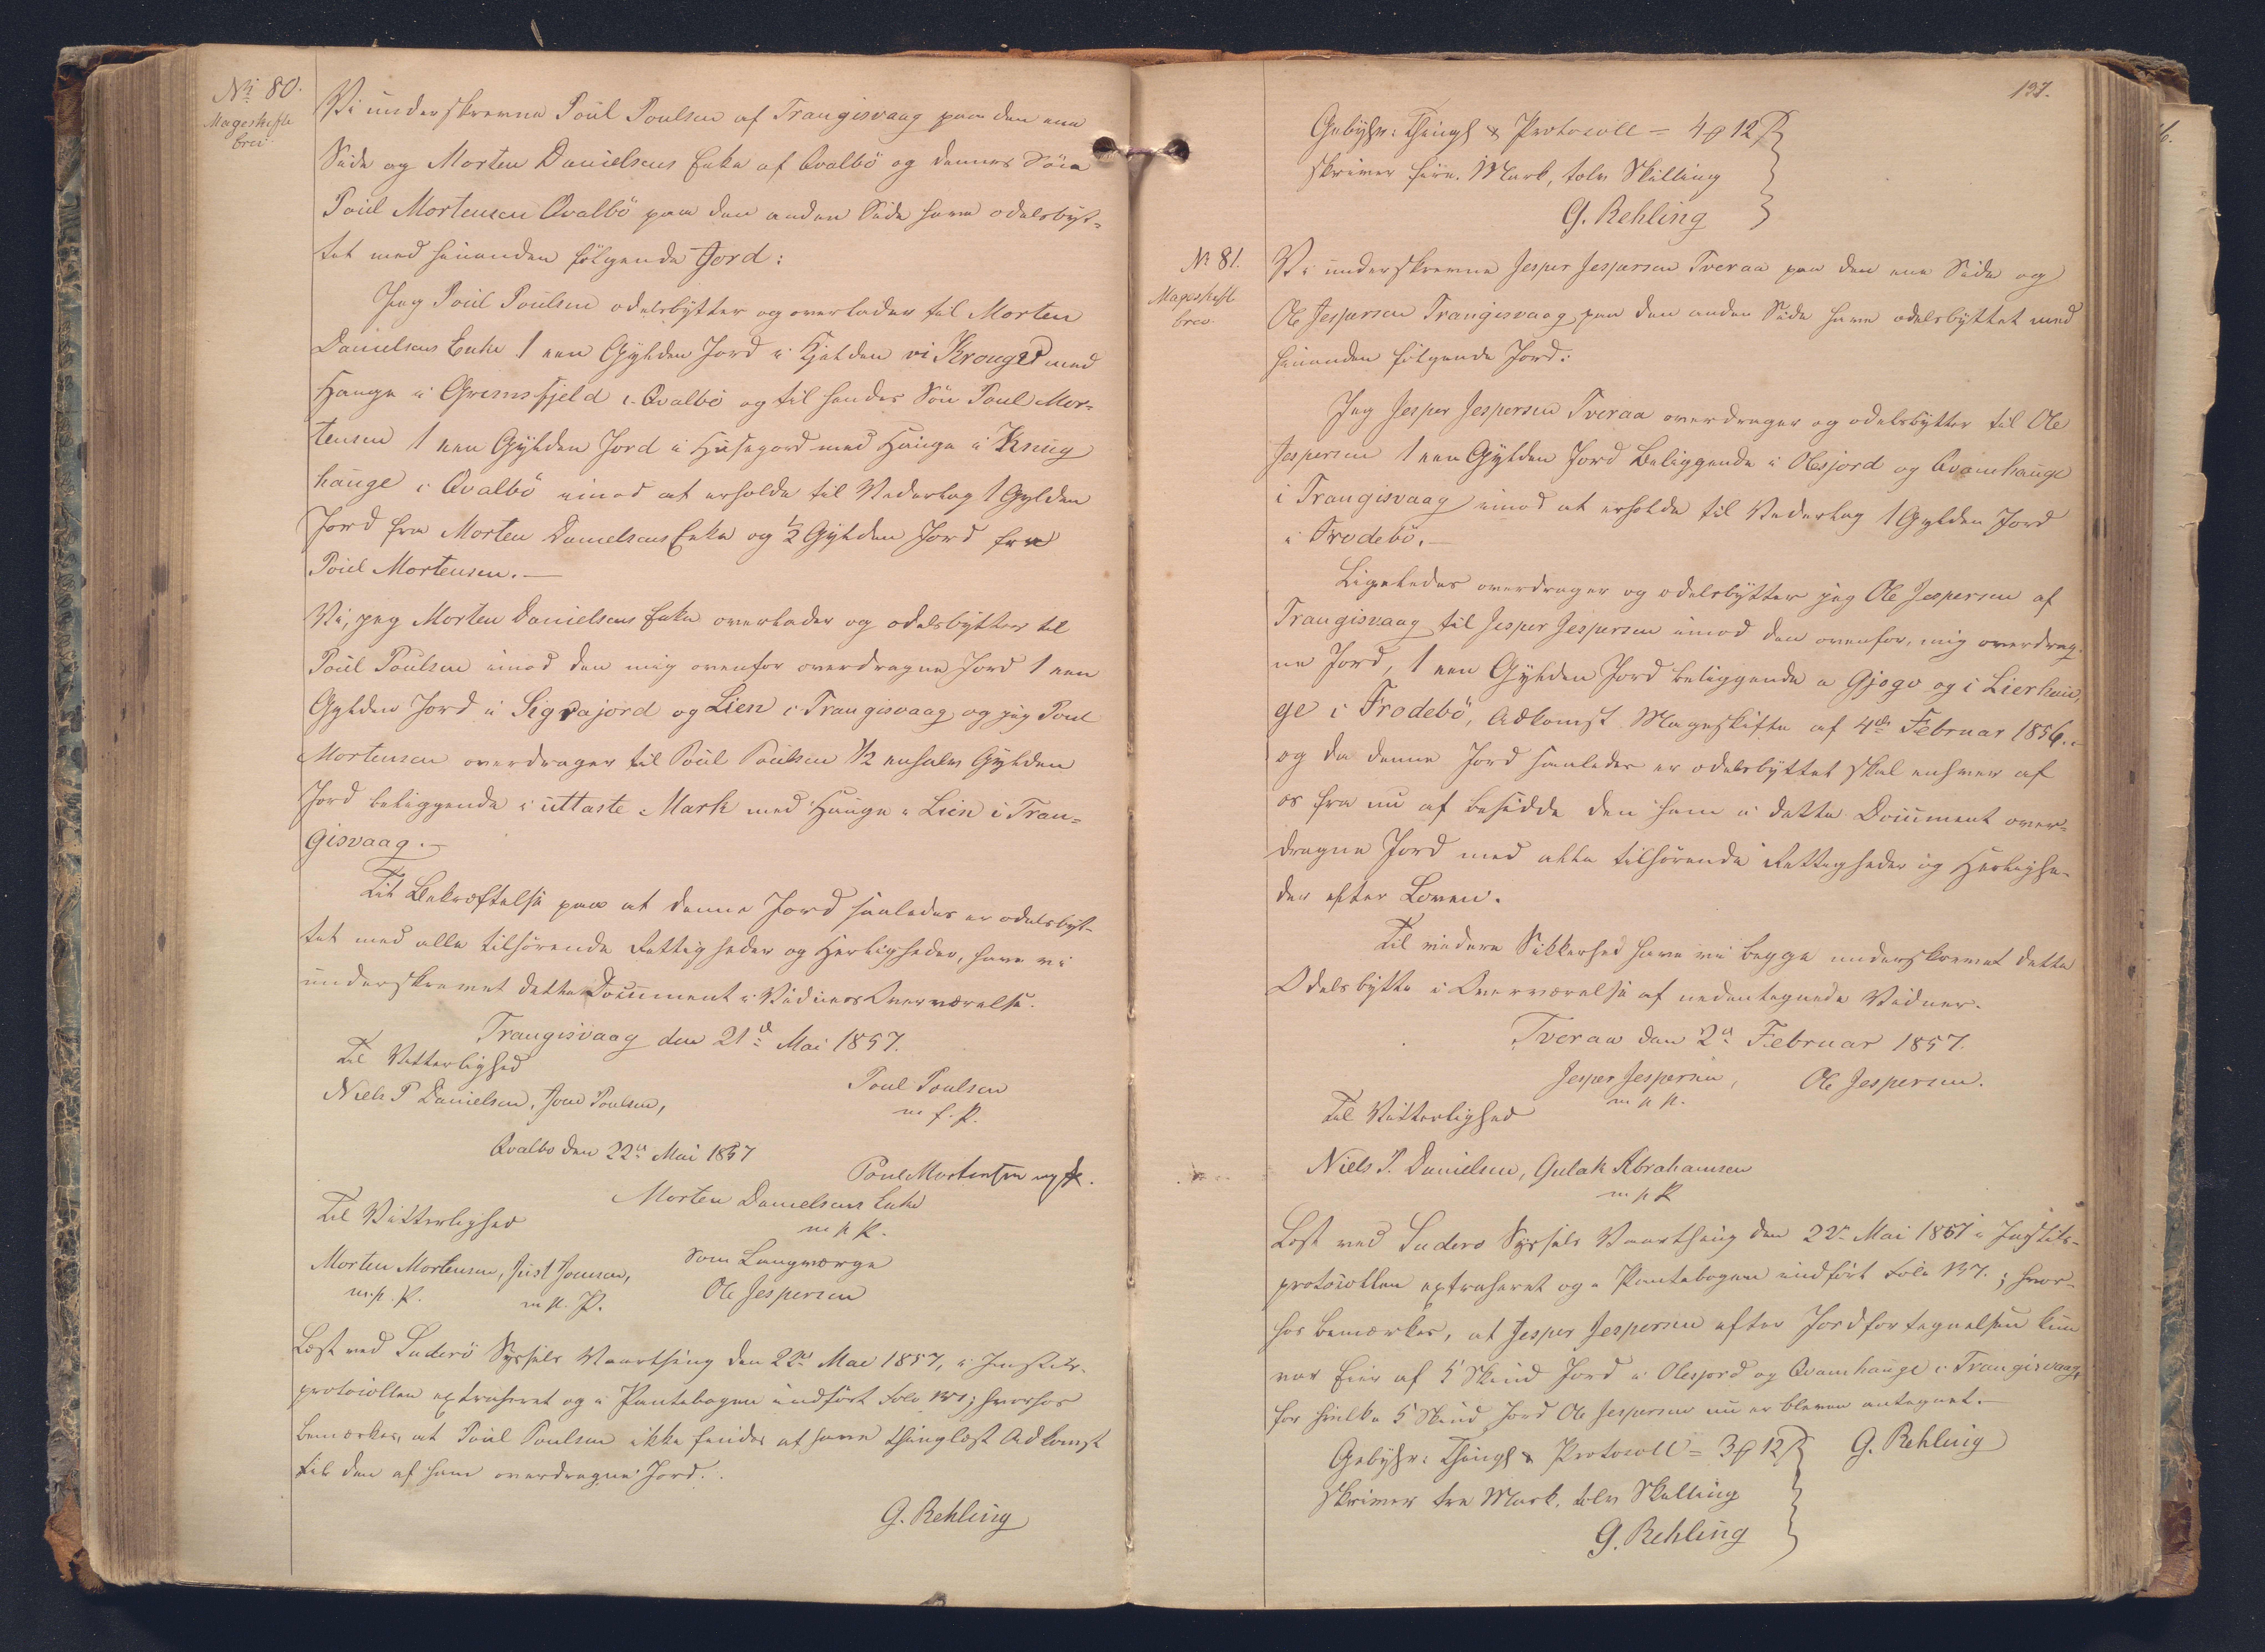 No 80.
Mageskifte
brev.
Vi underskrevne Poul Poulsen af Trangisvaag paa den ene
Side og Morten Danielsens Enke af Qvalbö og dennes Sön
Poul Mortensen Qvalbö paa den anden Side have odelsbyt-
tet med hinanden fölgende Jord:
Jeg Poul Poulsen odelsbytter og overlader til Morten
Danielsens Enke 1 een Gylden Jord i Kjelden vi Krouged med
Hauge i Grimsfjeld i Qvalbö og til hendes Sön Poul Mor-
tensen 1 een Gylden Jord i Húsegord med Hauge i Knúg
hauge i Qvalbö imod at erholde til Vederlag 1 Gylden
Jord fra Morten Danielsens Enke og 1/2 Gylden Jord fra
Poul Mortensen.—
Vi, jeg Morten Danielsens Enke overlader og odelsbytter til
Poul Poulsen imod den mig ovenfor overdragne Jord 1 een
Gylden Jord i Sigvajord og Lien i Trangisvaag og jeg Poul
Mortensen overdrager til Poul Poulsen 1/2 enhalv Gylden
Jord beliggende i uttaste Mark med Hauge i Lien i Tran-
gisvaag.—
Til Bekræftelse paa at denne Jord saaledes er odelsbyt-
tet med alle tilhörende Rettigheder og Herligheder, have vi
underskrevet dette Document i Vidners Overværelse.
Trangisvaag den 21de Mai 1857.
Til Vitterlighed
Niels P Danielsen, Joen Poulsen,
Poul Poulsen
m. f. P.
Qvalbo den 22de Mai 1857
Poul Mortensen
Morten Danielsens Enke
m p P.
Til Vitterlighed
Som Laugværge
Morten Mortensen, Just Joensen,
Ole Jespersen
m. p. P. m p. P.
Læst ved Suderö Syssels Vaarthing den 22de Mai 1857, i Justits-
protocollen extraheret og i Pantebogen indfört Folio 137; hvorhos
bemærkes, at Poul Poulsen ikke findes at have thinglæst Adkomst
til den af ham overdragne Jord.
G. Rehling
137.
Gebyhr: Thingl & Protocoll = 4 12
skriver fire Mark, tolv Skilling
G. Rehling
No 81.
Mageskift
brev.
Vi underskrevne Jesper Jespersen Tveraa paa den ene Side og
Ole Jespersen Trangisvaag paa den anden Side have odelsbyttet med
hinanden fölgende Jord:
Jeg Jesper Jespersen Tveraa overdrager og odelsbytter til Ole
Jespersen 1 een Gylden Jord beliggende i Olesjord og Qvamhauge
i Trangisvaag imod at erholde til Vederlag 1 Gylden Jord
i Frodebö.—
Ligeledes overdrager og odelsbytter jeg Ole Jespersen af
Trangisvaag til Jesper Jespersen imod den ovenfor, mig overdrag-
ne Jord, 1 een Gylden Jord beliggende i Gjogv og i Lierhau,
ge i Frodebö, Adkomst Mageskifte af 4de Februar 1856.-
og da denne Jord saaledes er odelsbyttet skal enhver af
os fra nu af besidde den ham i dette Document over-
dragne Jord med alle tilhörende Rettigheder og Herlighe-
der efter Loven.
Til videre Sikkerhed have vi begge underskrevet dette
Odelsbytte i Overværelse af nedentegnede Vidner.
Tveraa den 2de Februar 1857.
Jesper Jespersen, Ole Jespersen.
m p P.
Til Vitterlighed
Niels P. Danielsen, Gulak Abrahamsen
m p P
Læst ved Suderö Syssels Vaarthing den 22de Mai 1857 i Justits-
protocollen extraheret og i Pantebogen indfört Folio 137.; hvor-
hos bemærkes, at Jesper Jespersen efter Jordfortegnelsen kun
var Eier af 5 Skind Jord i Olesjord og Qvamhauge i Trangisvaag,
for hvilke 5 Skind Jord Ole Jespersen nu er bleven antegnet.—
G. Rehling
Gebyhr: Thingl & Protocoll = 3 12
skriver tre Mark, tolv Skilling
G. Rehling